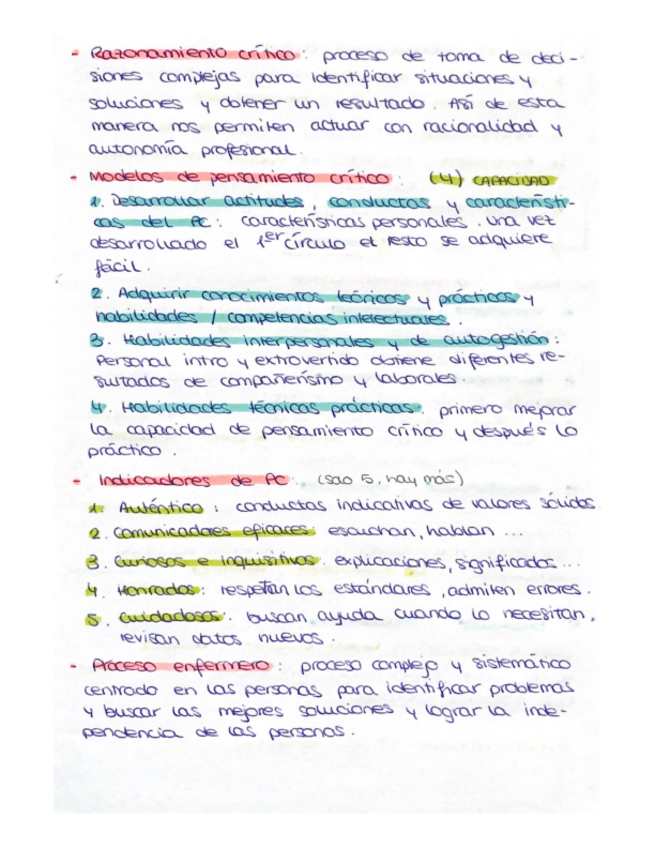 - Razonamiento crítico : proceso de toma de deci-
siones complejas para identificar situaciones y
soluciones y obtener un resultado. Así de esta
manera nos permiten actuar con racionalidad y
autonomía profesional.
- Modelos de pensamiento crítico : (4) CAPACIDAD
1. Desarrollar actitudes, conductas y característi-
cas del PC : características personales. una vez
desarrollado el 1er círculo el resto se adquiere
fácil.
2. Adquirir conocimientos teóricos y prácticos y
habilidades / competencias intelectuales.
3. Habilidades interpersonales y de autogestión :
Personal intro y extrovertido obtiene diferentes re-
sultados de compañerismo y laborales.
4. Habilidades técnicas prácticas. primero mejorar
la capacidad de pensamiento crítico y después lo
práctico.
- Indicadores de PC : (sao 5, hay más)
1. Auténtico : conductas indicativas de valores sólidos.
2. Comunicadores eficaces : escuchan, hablan ...
3. Curiosos e inquisitivos : explicaciones, significados ...
4. Honrados : respetan los estándares, admiten errores.
5. Cuidadosos : buscan ayuda cuando lo necesitan,
revisan datos nuevos.
- Proceso enfermero : proceso complejo y sistemático
centrado en las personas para identificar problemas
y buscar las mejores soluciones y lograr la inde-
pendencia de las personas.